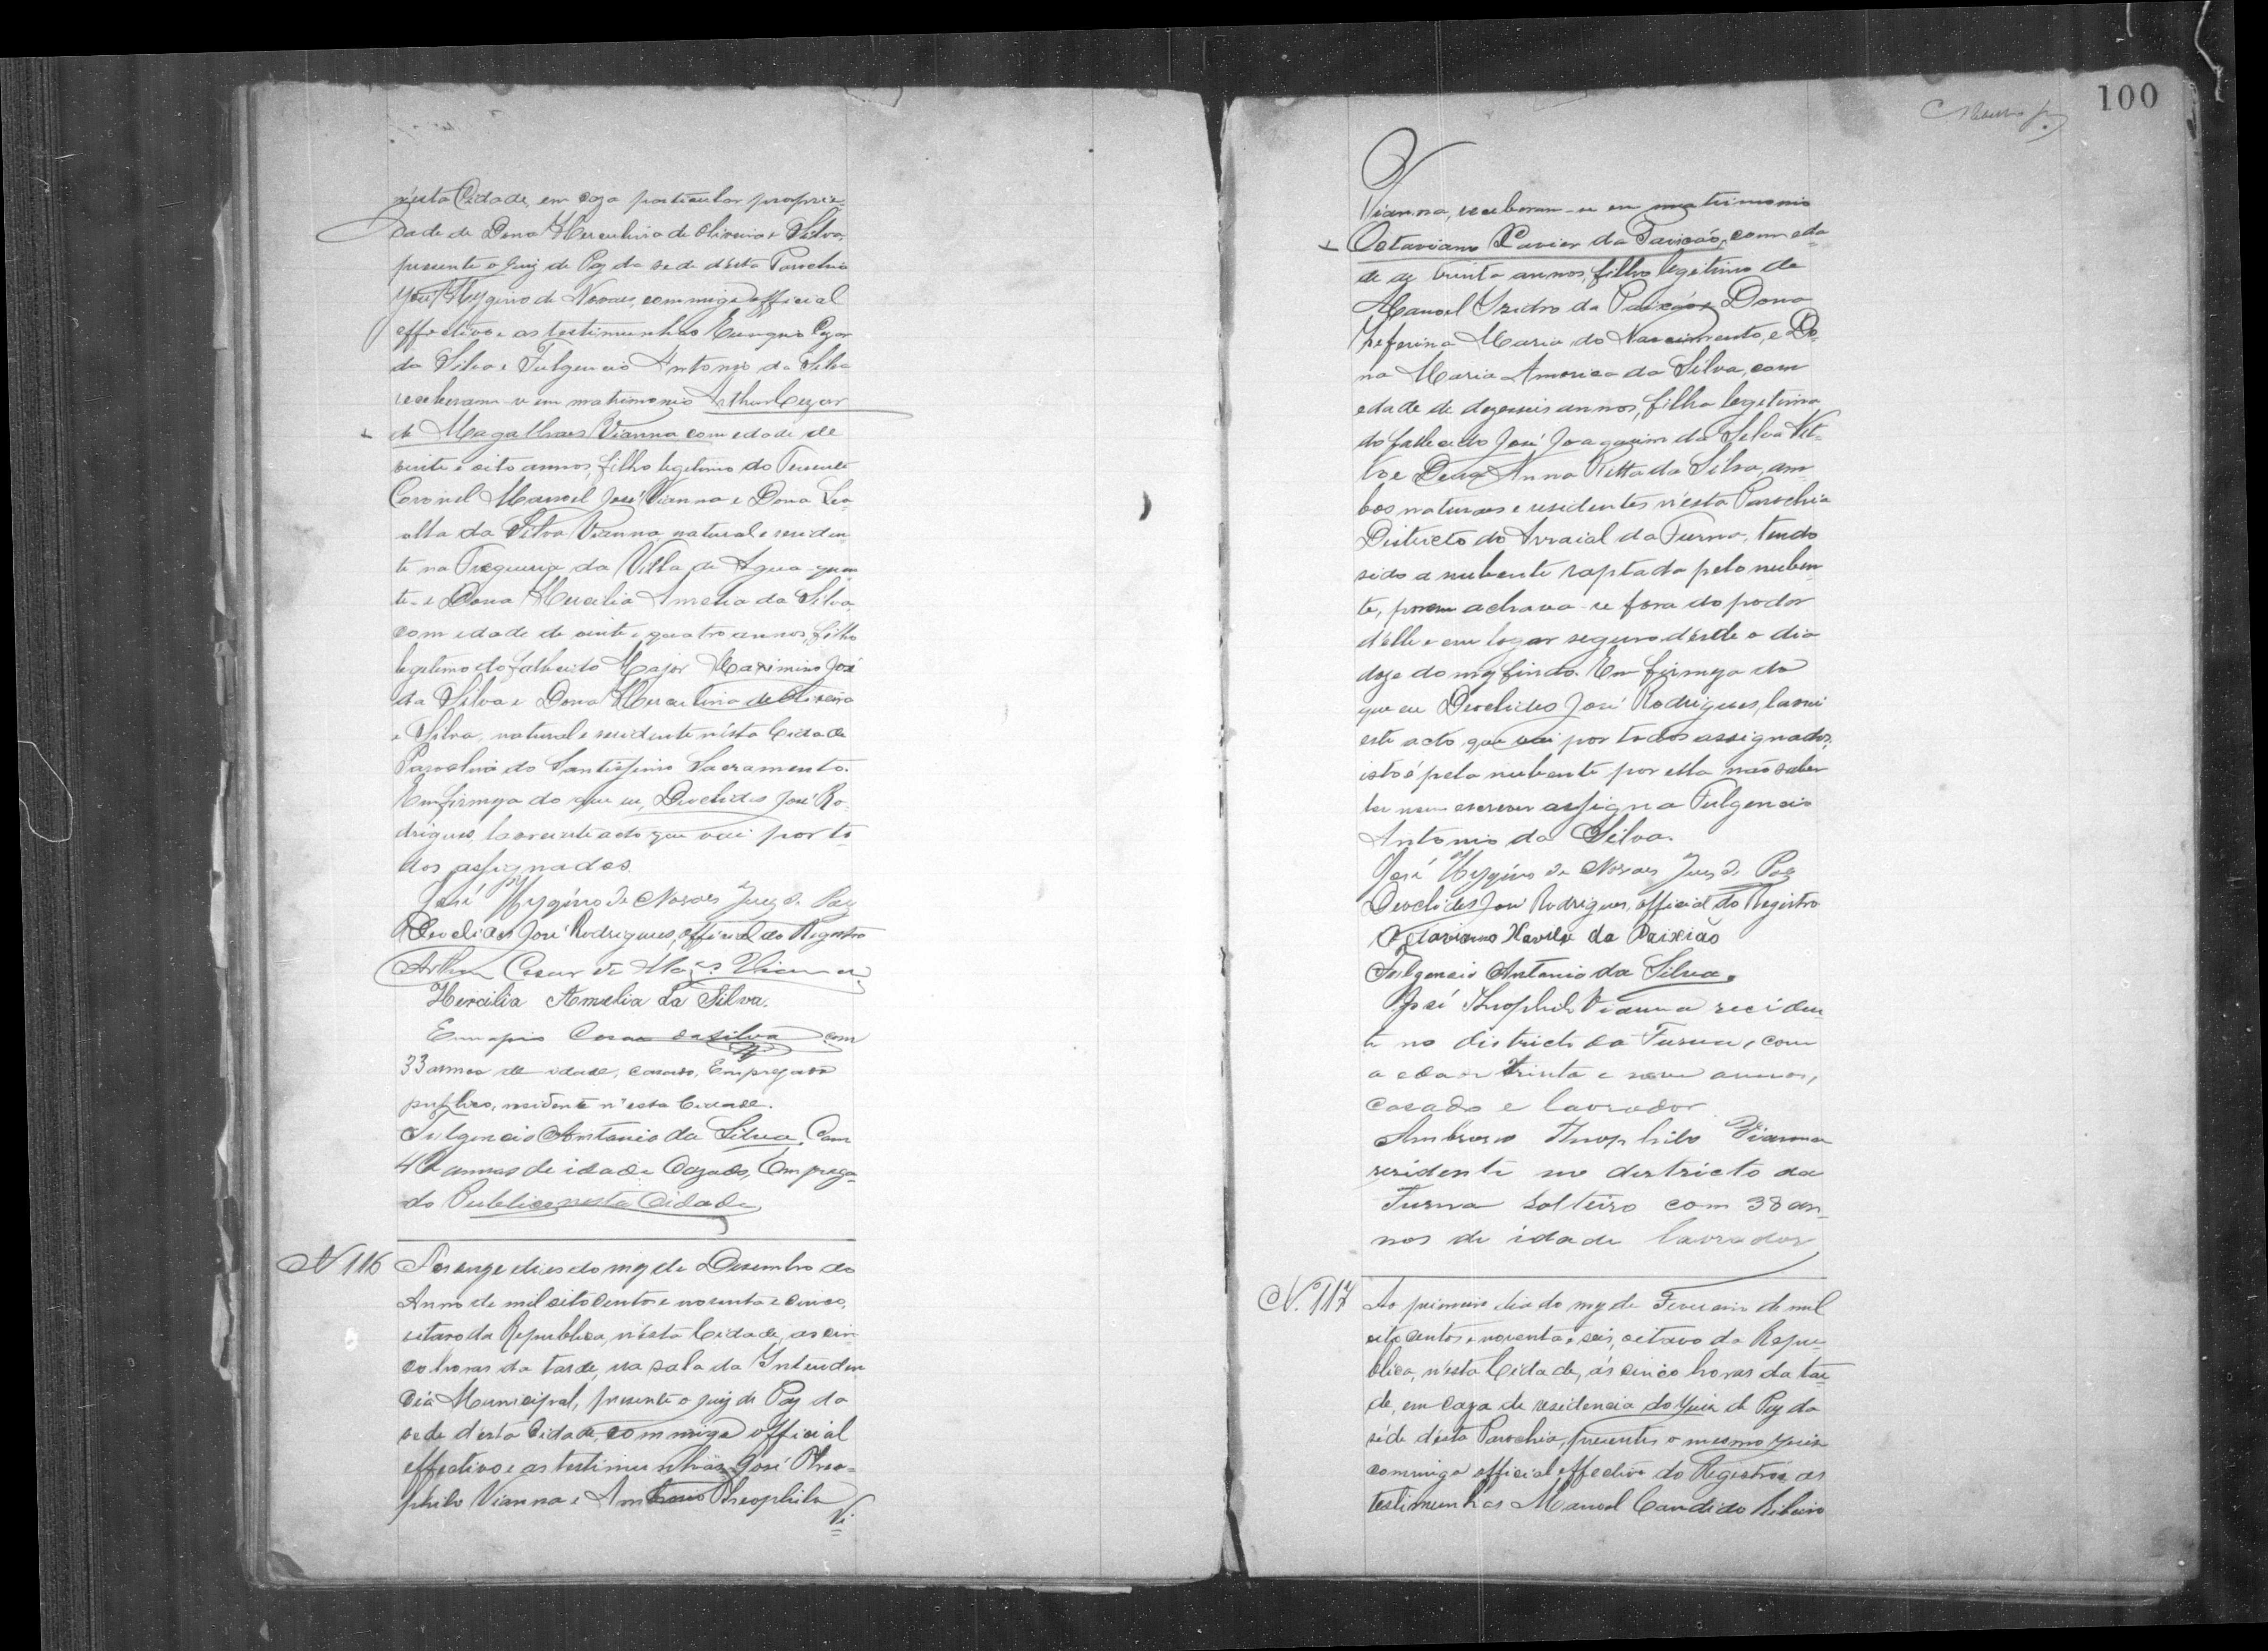 nésta Cidade, em caza particular proprie-
dade de Dona Herculina de Oliveira e Silva,
presente o Juiz de Paz da sede désta Parochia
José Hygino de Novaes, commigo official
effectivo e as testimunhas Eunapio Cezar
da Silva e Fulgencio Antonio da Silva
receberam-se em matrimonio Arthur Cezar
de Magalhaes Vianna com edade de
vinte e oito annos, filho legitimo do Tenente
Coronel Manoel José Vianna e Dona Leo-
olta da Silva Vianna natural e residen-
te na Freguezia da Villa de Agua-quen-
te- e Dona Hercilia Amelia da Silva,
com edade de vinte e quatro annos, filha
legitima do fallecido Major Maximino José
da Silva e Dona Herculina de Oliveira
e Silva, natural e residente nésta Cidade
Parochia do Santissimo Sacramento.
Em firmeza do que eu, Deoclides José Ro-
drigues, lavrei este acto que vai por to-
dos assignados.
José Hygino de Novaes Juiz de Paz
Deoclides José Rodrigues, official do Registro
Arthur Cesar de Mag.es Vianna
Hercilia Amelia da Silva.
Eunapio Cesar da Silva com
33 annos de idade, casado, Empregado
publico, residente n'esta Cidade.
Fulgencio Antonio da Silva, Com
annos de idade Cazado, Empraga-
do Publico nesta Cidade
N 116 Aos onze dias do mez de Desembro do
Anno de mil oito centos e noventa e cinco,
setavo da Republica, n'ésta Cidade, as cin-
co horas da tarde, na sala da Intenden-
cia Municipal, presente o juiz de Paz da
sede désta Cidade, commigo official
effectivo e as testimunhas José Theo-
philo Vianna e Ambrosio Theophilo
Vi-
100
Novaes
Vianna, receberam-se em matrimonio
Octaviano Xavier da Paixão, com eda-
de de trinta annos, filho legitimo de
Manoel Izidro da Paixão e Dona
Zeferina Maria do Nascimento, e Do-
na Maria America da Silva, com
edade de dezeseis annos, filha legitima
do fallecido José Joaquim da Silva Net-
to e Dona Anna Ritta da Silva, am-
bos naturaes e residentes n'esta Parochia
Districto do Arraial da Furna, tendo
sido a nubente raptada pelo nuben-
te, porem achava-se fora do poder
délle e em logar seguro désde o dia
doze do mez findo. Em firmeza do
que eu Deoclides José Rodrigues, lavrei
este acto que vai por todos assignados,
isto é pela nubente por ella não saber
ler nem escrever assigna Fulgencio
Antonio da Silva.
José Hygino de Novaes Juiz de Paz
Deoclides José Rodrigues, official do Registro
Octaviano Xavier da Paixião
Fulgencio Antonio da Silva.
José Theophilo Vianna reciden-
te no districto da Furna, com
a edade trinta e nove annos,
casado e lavrador
Ambrosio Theophilo Vianna
residente no destricto da
Furna solteiro com 38 an-
nos de idade lavrador
N. 117 Ao primeiro dia do mez de Fevereiro de mil
oito centos e noventa e seis, oitavo da Repu-
blica, n'ésta Cidade, ás cinco horas da tar-
de, em caza de residencia do Juiz de Paz da
séde désta Parochia, presentes o mesmo Juiz
commigo official effectivo do Registro e as
testimunhas Manoel Candido Ribeiro